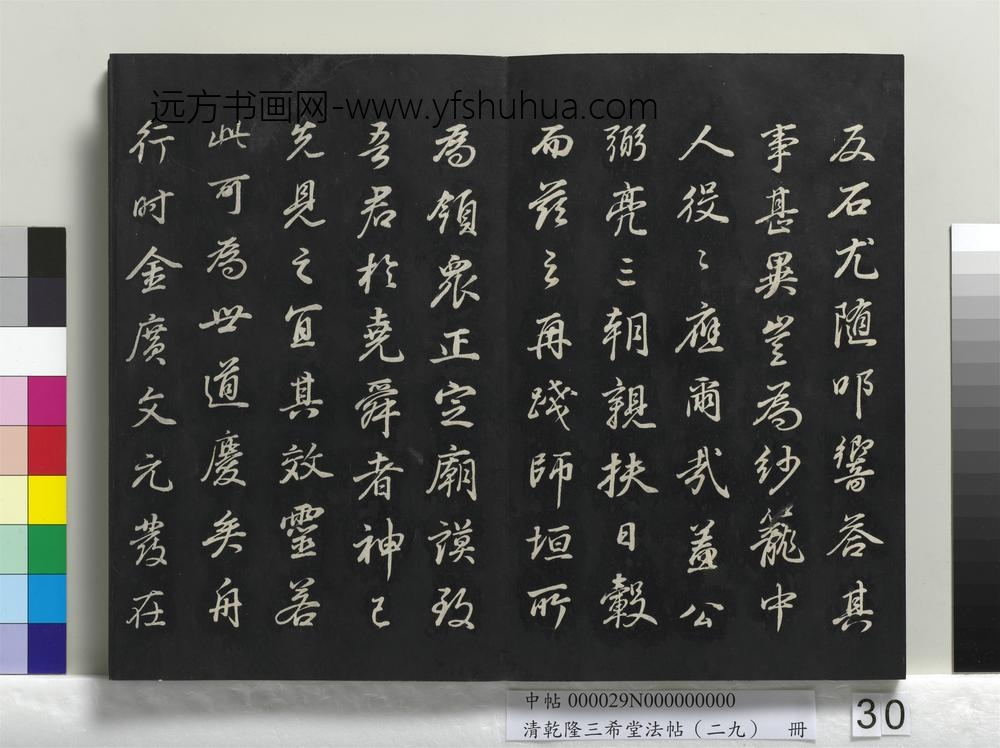 远方书画网-www.yfshuhua.com
反石尤随叩響答其
事甚異豈為紗籠中
人役〻應爾哉蓋公
弼亮三朝親扶日轂
而茲之再踐師垣所
為領眾正定廟謨致
吾君於堯舜者神已
先見之宜其效靈若
此可為世道慶矣舟
行时金廣文元發在
中帖 000029N000000000
清乾隆三希堂法帖（二九） 冊
30